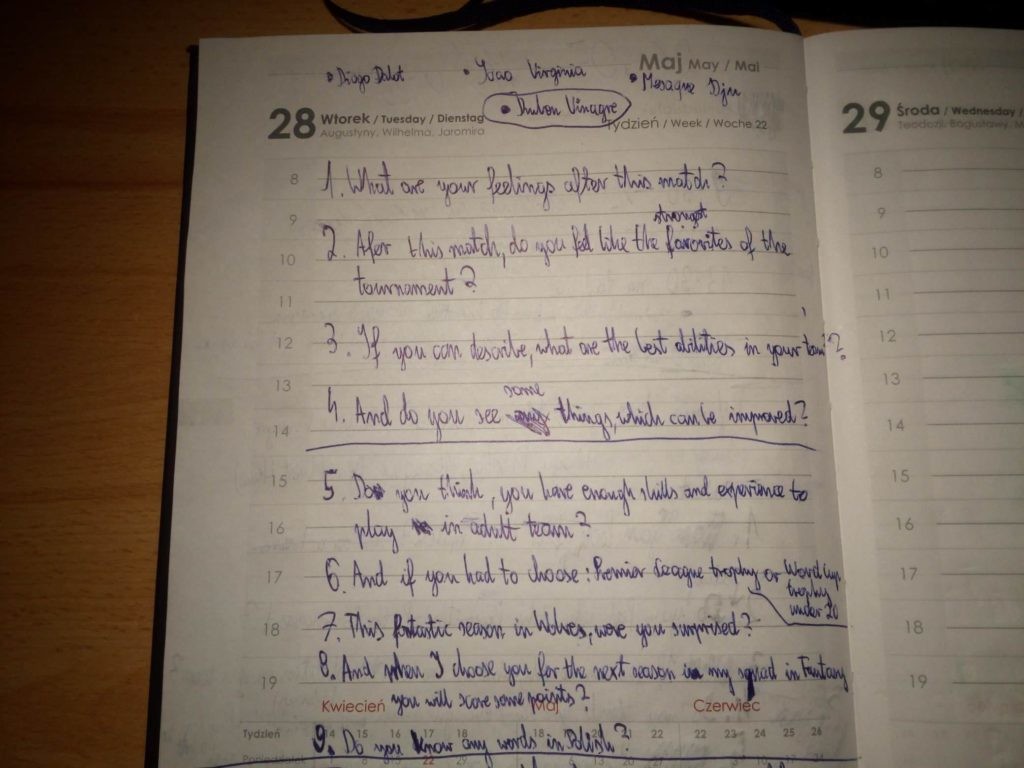 Maj May / Mai
• Diogo Dalot • Joao Virginia • Mesaque Dju
• Ruben Vinagre
28 Wtorek / Tuesday / Dienstag
Augustyny, Wilhelma, Jaromira
Tydzień / Week / Woche 22
29 Środa / Wednesday /
Teodozji, Bogusławy, M
8 1. What are your feelings after this match?
9
strongest
10 2. After this match, do you feel like the favorites of the
tournament?
11
12 3. If you can describe, what are the best abilities in your team?
13
some
14 4. And do you see things, which can be improved?
15 5. Do you think, you have enough skills and experience to
16 play in adult team?
17 6. And if you had to choose: Premier League trophy or Word Cup
trophy
under 20
18 7. This fantastic season in Wolves, were you surprised?
19 8. And when I choose you for the next season in my squad in Fantasy
you will score some points?
Kwiecień Maj Czerwiec
Tydzień 14 15 16 17 18 18 19 20 21 22 22 23 24 25 26
9. Do you know any words in Polish?
8
9
10
11
12
13
14
15
16
17
18
19